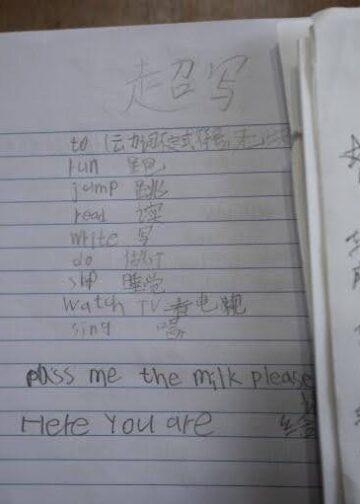 超写
to
run 跑
jump 跳
read 读
write 写
do 做
slip 睡觉
watch TV 看电视
sing 唱
pass me the milk please
Here You are 给